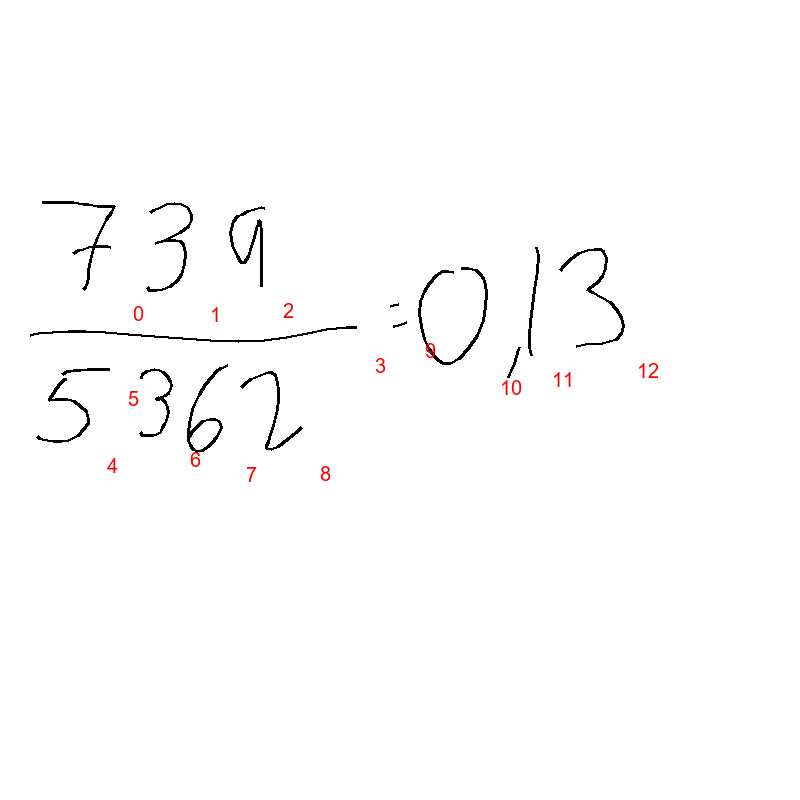 739
5362
=0,13
0 1 2
3
4 5 6 7 8
9 10 11 12